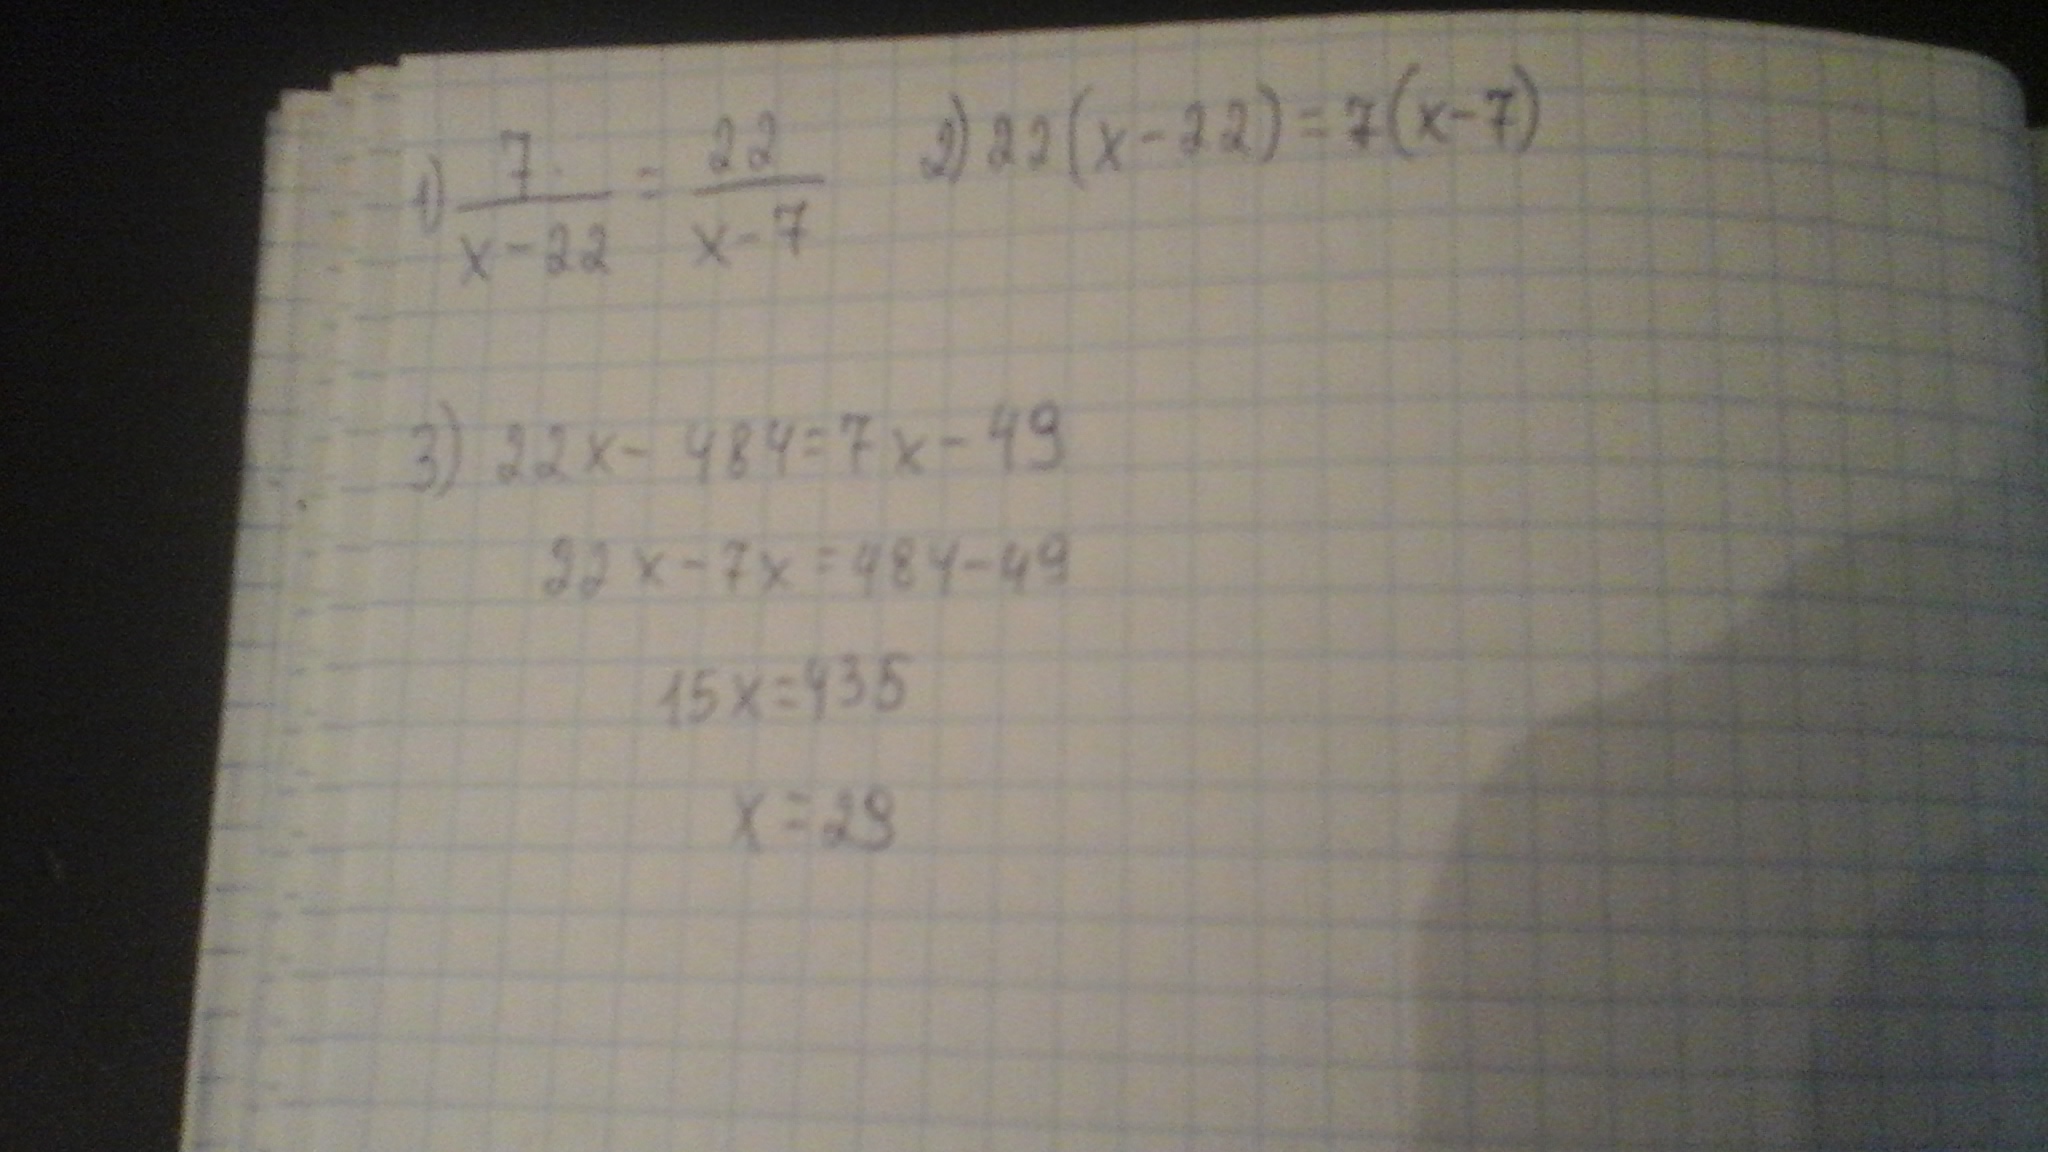 1) 7/(x-22) = 22/(x-7)
2) 22(x-22)=7(x-7)
3) 22x-484=7x-49
22x-7x=484-49
15x=435
x=29